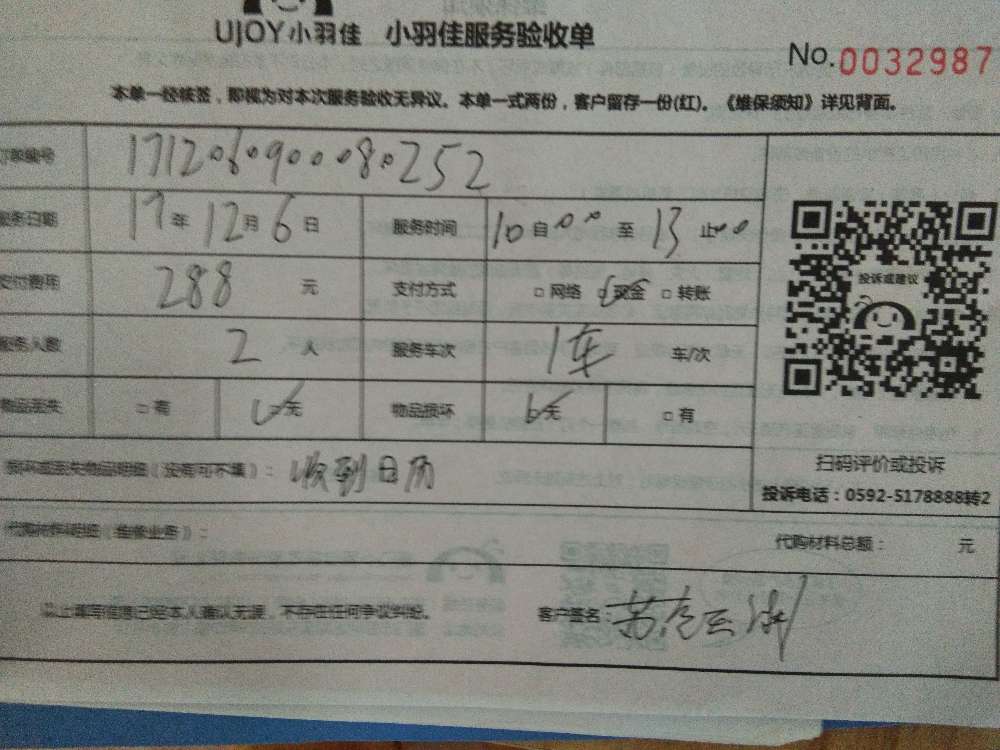 UJOY小羽佳 小羽佳服务验收单
No.0032987
本单一经核签，即视为对本次服务验收无异议。本单一式两份，客户留存一份(红)。《维保须知》详见背面。
订单编号 1712060900080252
服务日期 17年12月6日 服务时间 10自00至13止00
支付费用 288元 支付方式 □网络 □现金 □转账
服务人数 2人 服务车次 1车 车/次
物品丢失 □有 □无 物品损坏 □无 □有
投诉或建议
扫码评价或投诉
投诉电话：0592-5178888转2
损坏或丢失物品明细（没有可不填）：收到日历
代购材料明细（维修业务）： 代购材料总额： 元
以上填写信息已经本人确认无误，不存在任何争议纠纷。 客户签名：